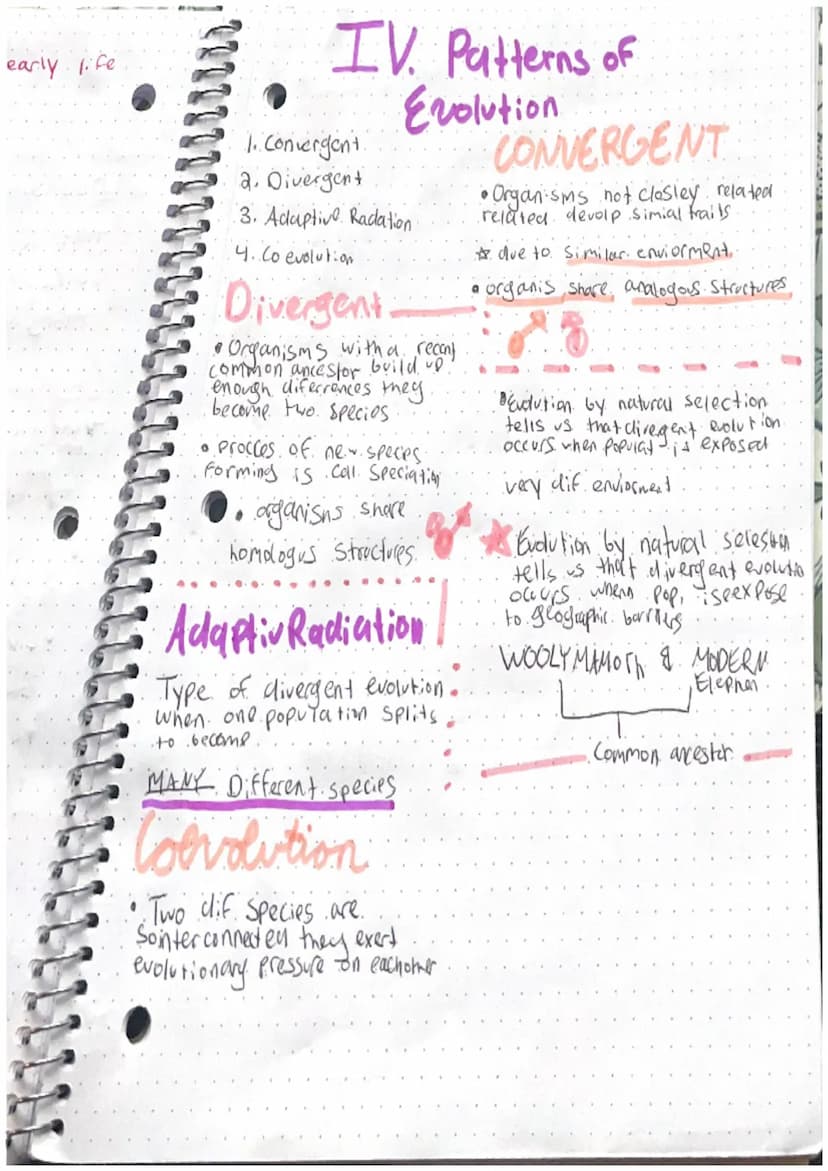 early life
IV. Patterns of
Evolution
1. Convergent
2. Divergent
3. Adaptive Radation
4. Coevolution
CONVERGENT
• Organisms not closley related
related devolp simial traits
☆ due to similar enviorment
• organis share analogous structures
Divergent
• Organisms with a recent
common ancestor build up
enough diferrences they
become two species
• Procces of new species
forming is call speciation
• organisms share
homologus structures
• Evolution by natural selection
tells us that divegent evolution
occurs when populat is exposed
very dif enviorment
☆ Evolution by natural selestion
tells us that divergent evolutio
occurs when pop, is expose
to geographic barriers
WOOLY MAMOTH & MODERN
Elephan
Common ancestor
Adaptiv Radiation
Type of divergent evolution
when one population splits
to become
MANY Different species
Coevolution
• Two dif species are
so interconnected they exert
evolutionary pressure on eachother